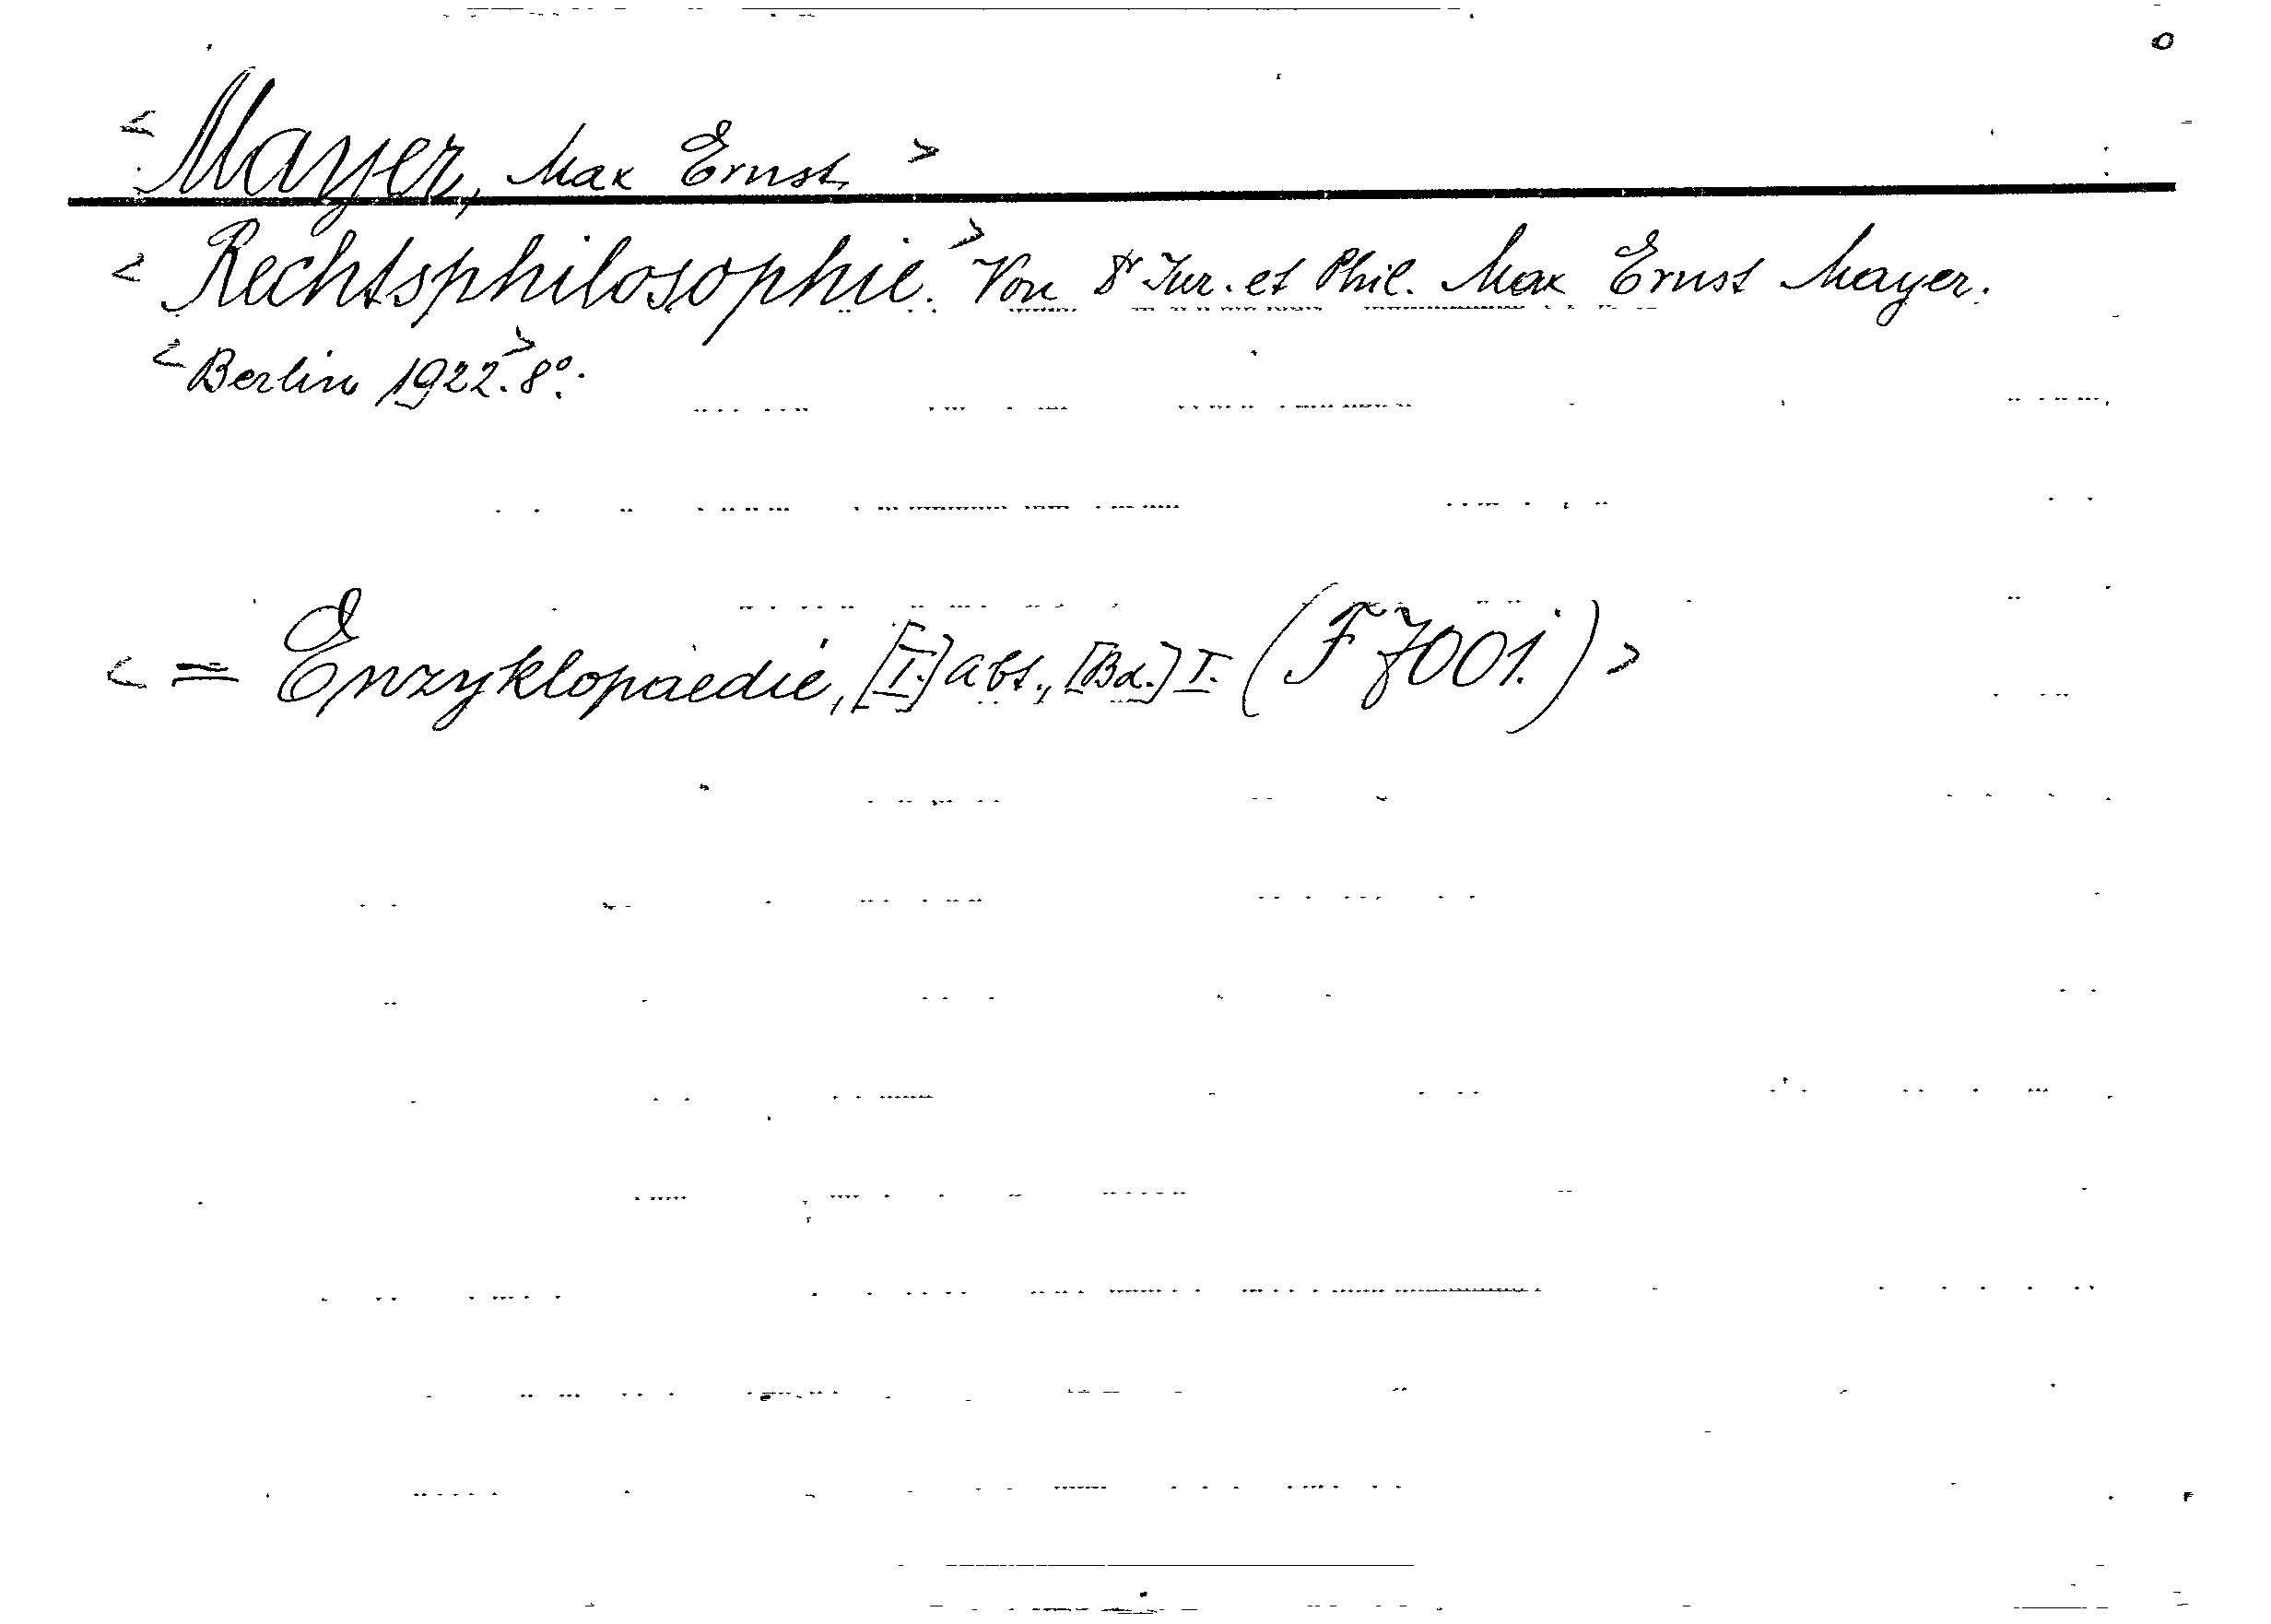 <Mayer, Max Ernst.>
<Rechtsphilosophie.> Von Dr Jur. et Phil. Max Ernst Mayer.
<Berlin 1922.> 8°.
<= Enzyklopaedie, [I.] Abt., [Bd.] I. (F 7001.)>